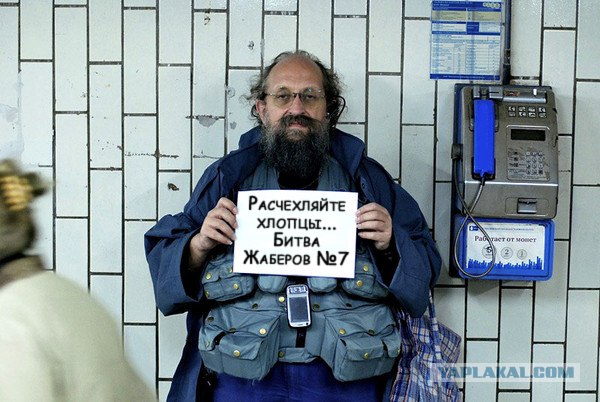 Расчехляйте
хлопцы...
Битва
Жаберов №7
Работает от монет
YAPLAKAL.COM